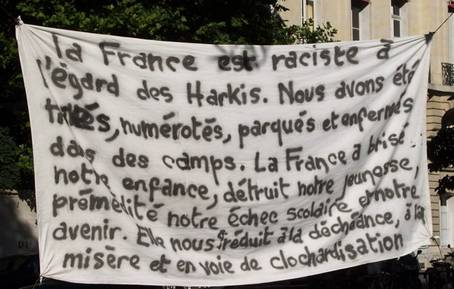 La France est raciste à
l'égard des Harkis. Nous avons été
triés, numérotés, parqués et enfermés
dans des camps. La France a brisé
notre enfance, détruit notre jeunesse,
prémédité notre échec scolaire et notre
avenir. Elle nous réduit à la déchéance, à la
misère et en voie de clochardisation